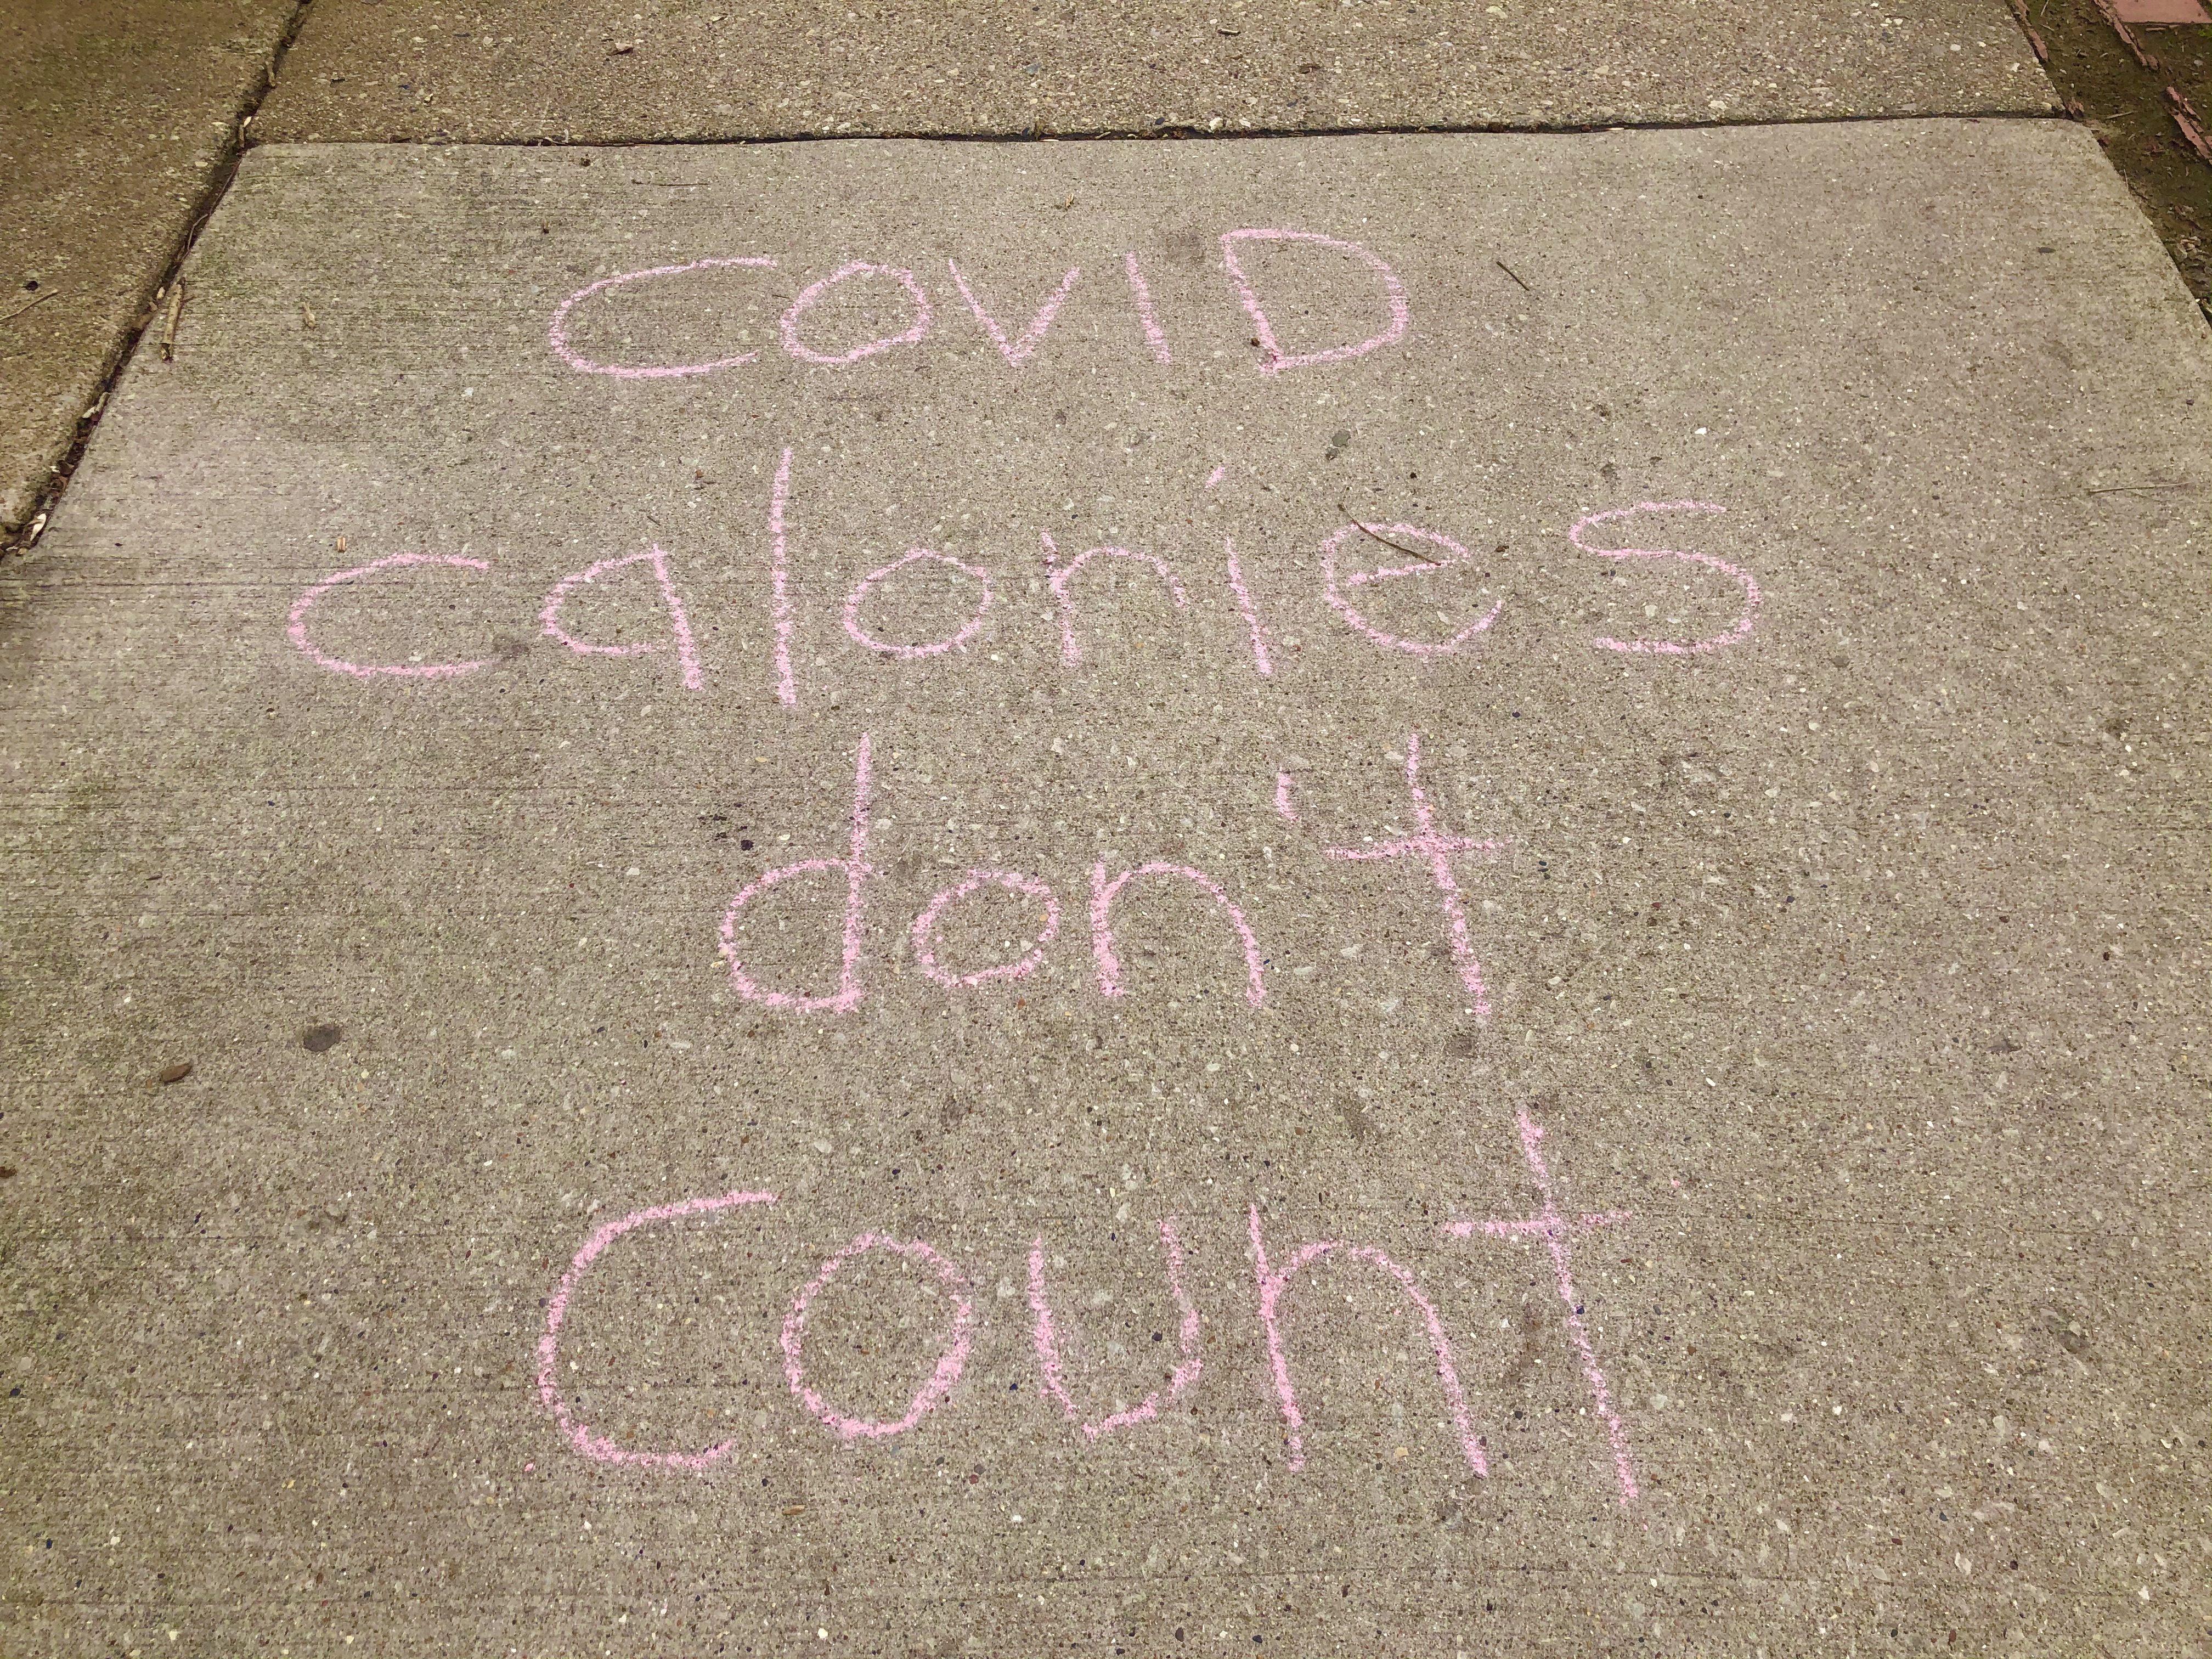 COVID
calories
don't
Count